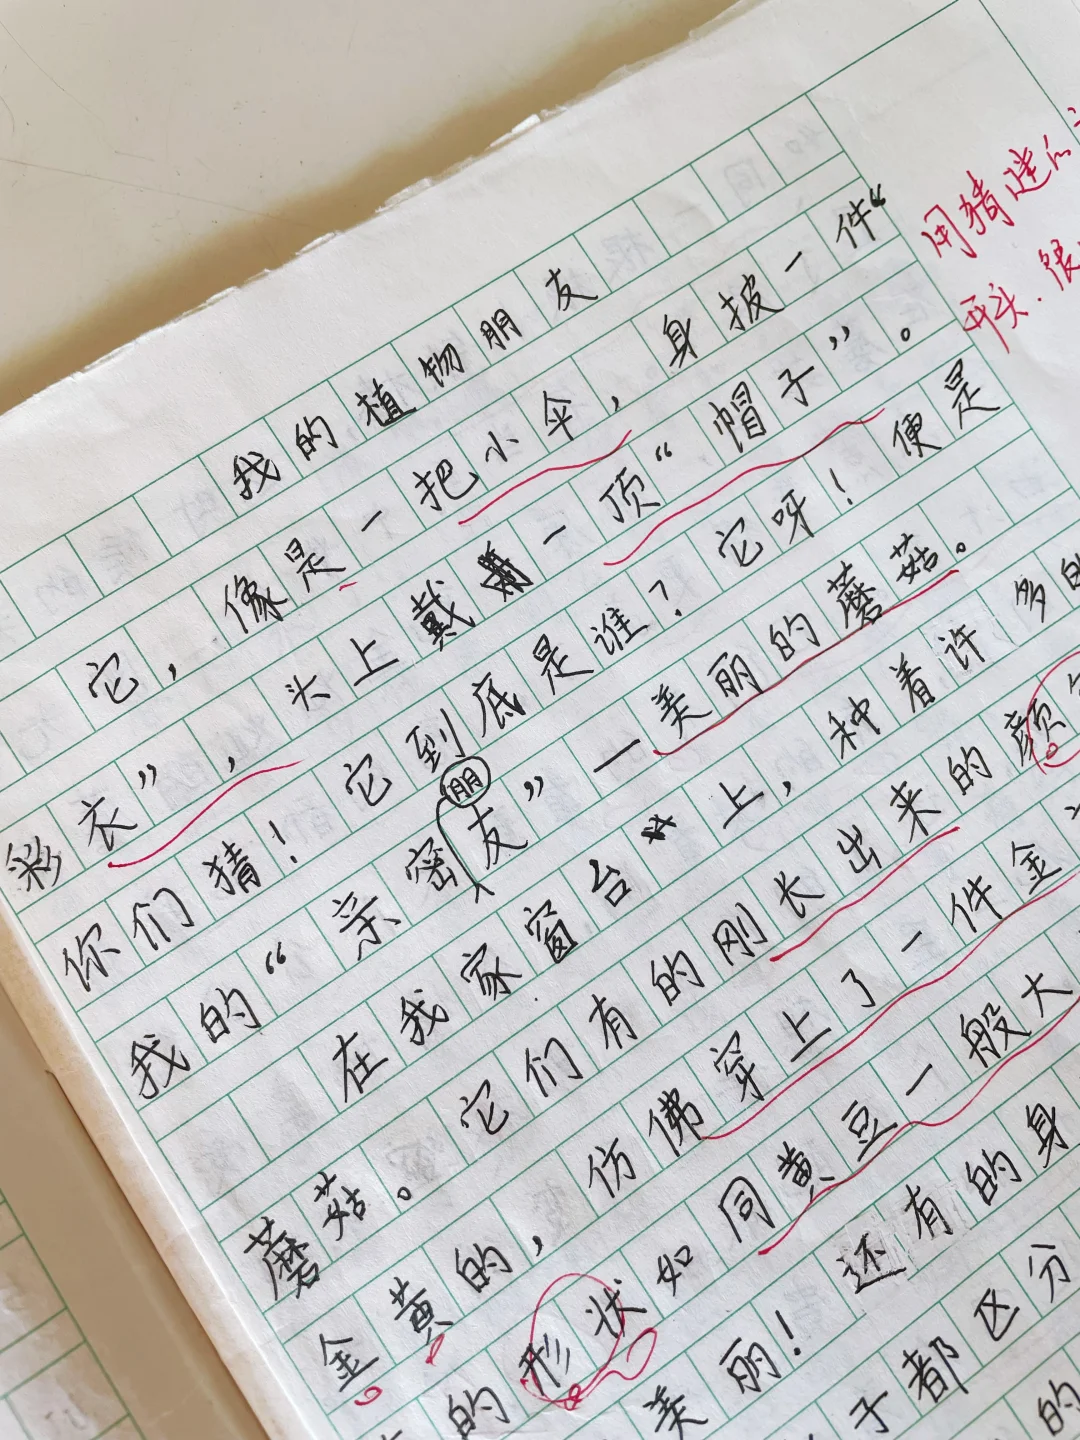 我的植物朋友
它，像是一把小伞，身披一件“
彩衣”，头上戴一顶“帽子”。
你们猜！它到底是谁？它呀！便是
我的“亲密朋友”一美丽的蘑菇。
在我家窗台上，种着许多的
蘑菇。它们有的刚长出来的颜
金黄的，仿佛穿上了一件金
的形状如同黄豆一般大
美丽！还有的身
子都区分
的
用猜谜的
开头．很